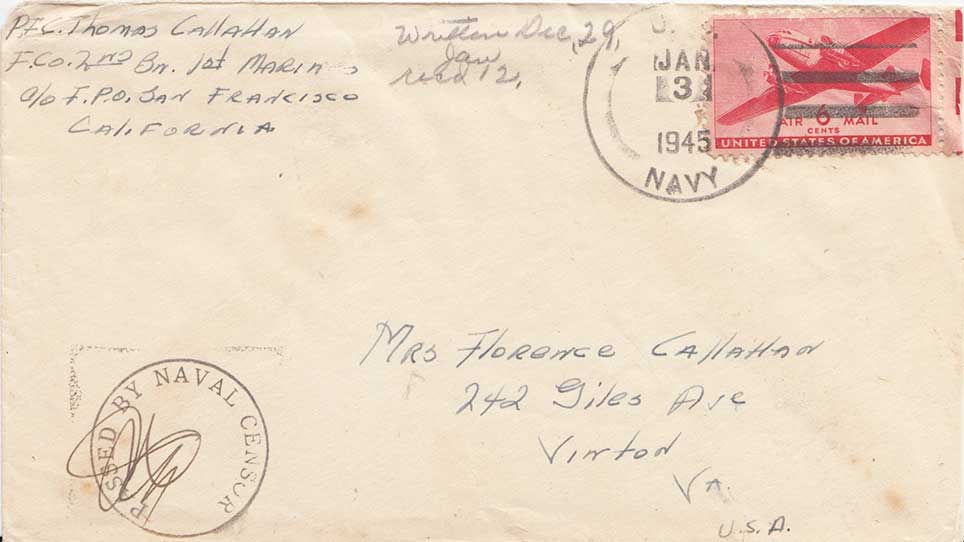 P.F.C. Thomas Callahan
F. Co. 2nd Bn. 1st Marines
c/o F.P.O. San Francisco
California
Written Dec, 29,
Jan
recd 12,
U.
JAN
3
1945
NAVY
AIR 6 MAIL
CENTS
UNITED STATES OF AMERICA
Mrs Florence Callahan
242 Giles Ave
Vinton
Va.
U.S.A.
PASSED BY NAVAL CENSOR